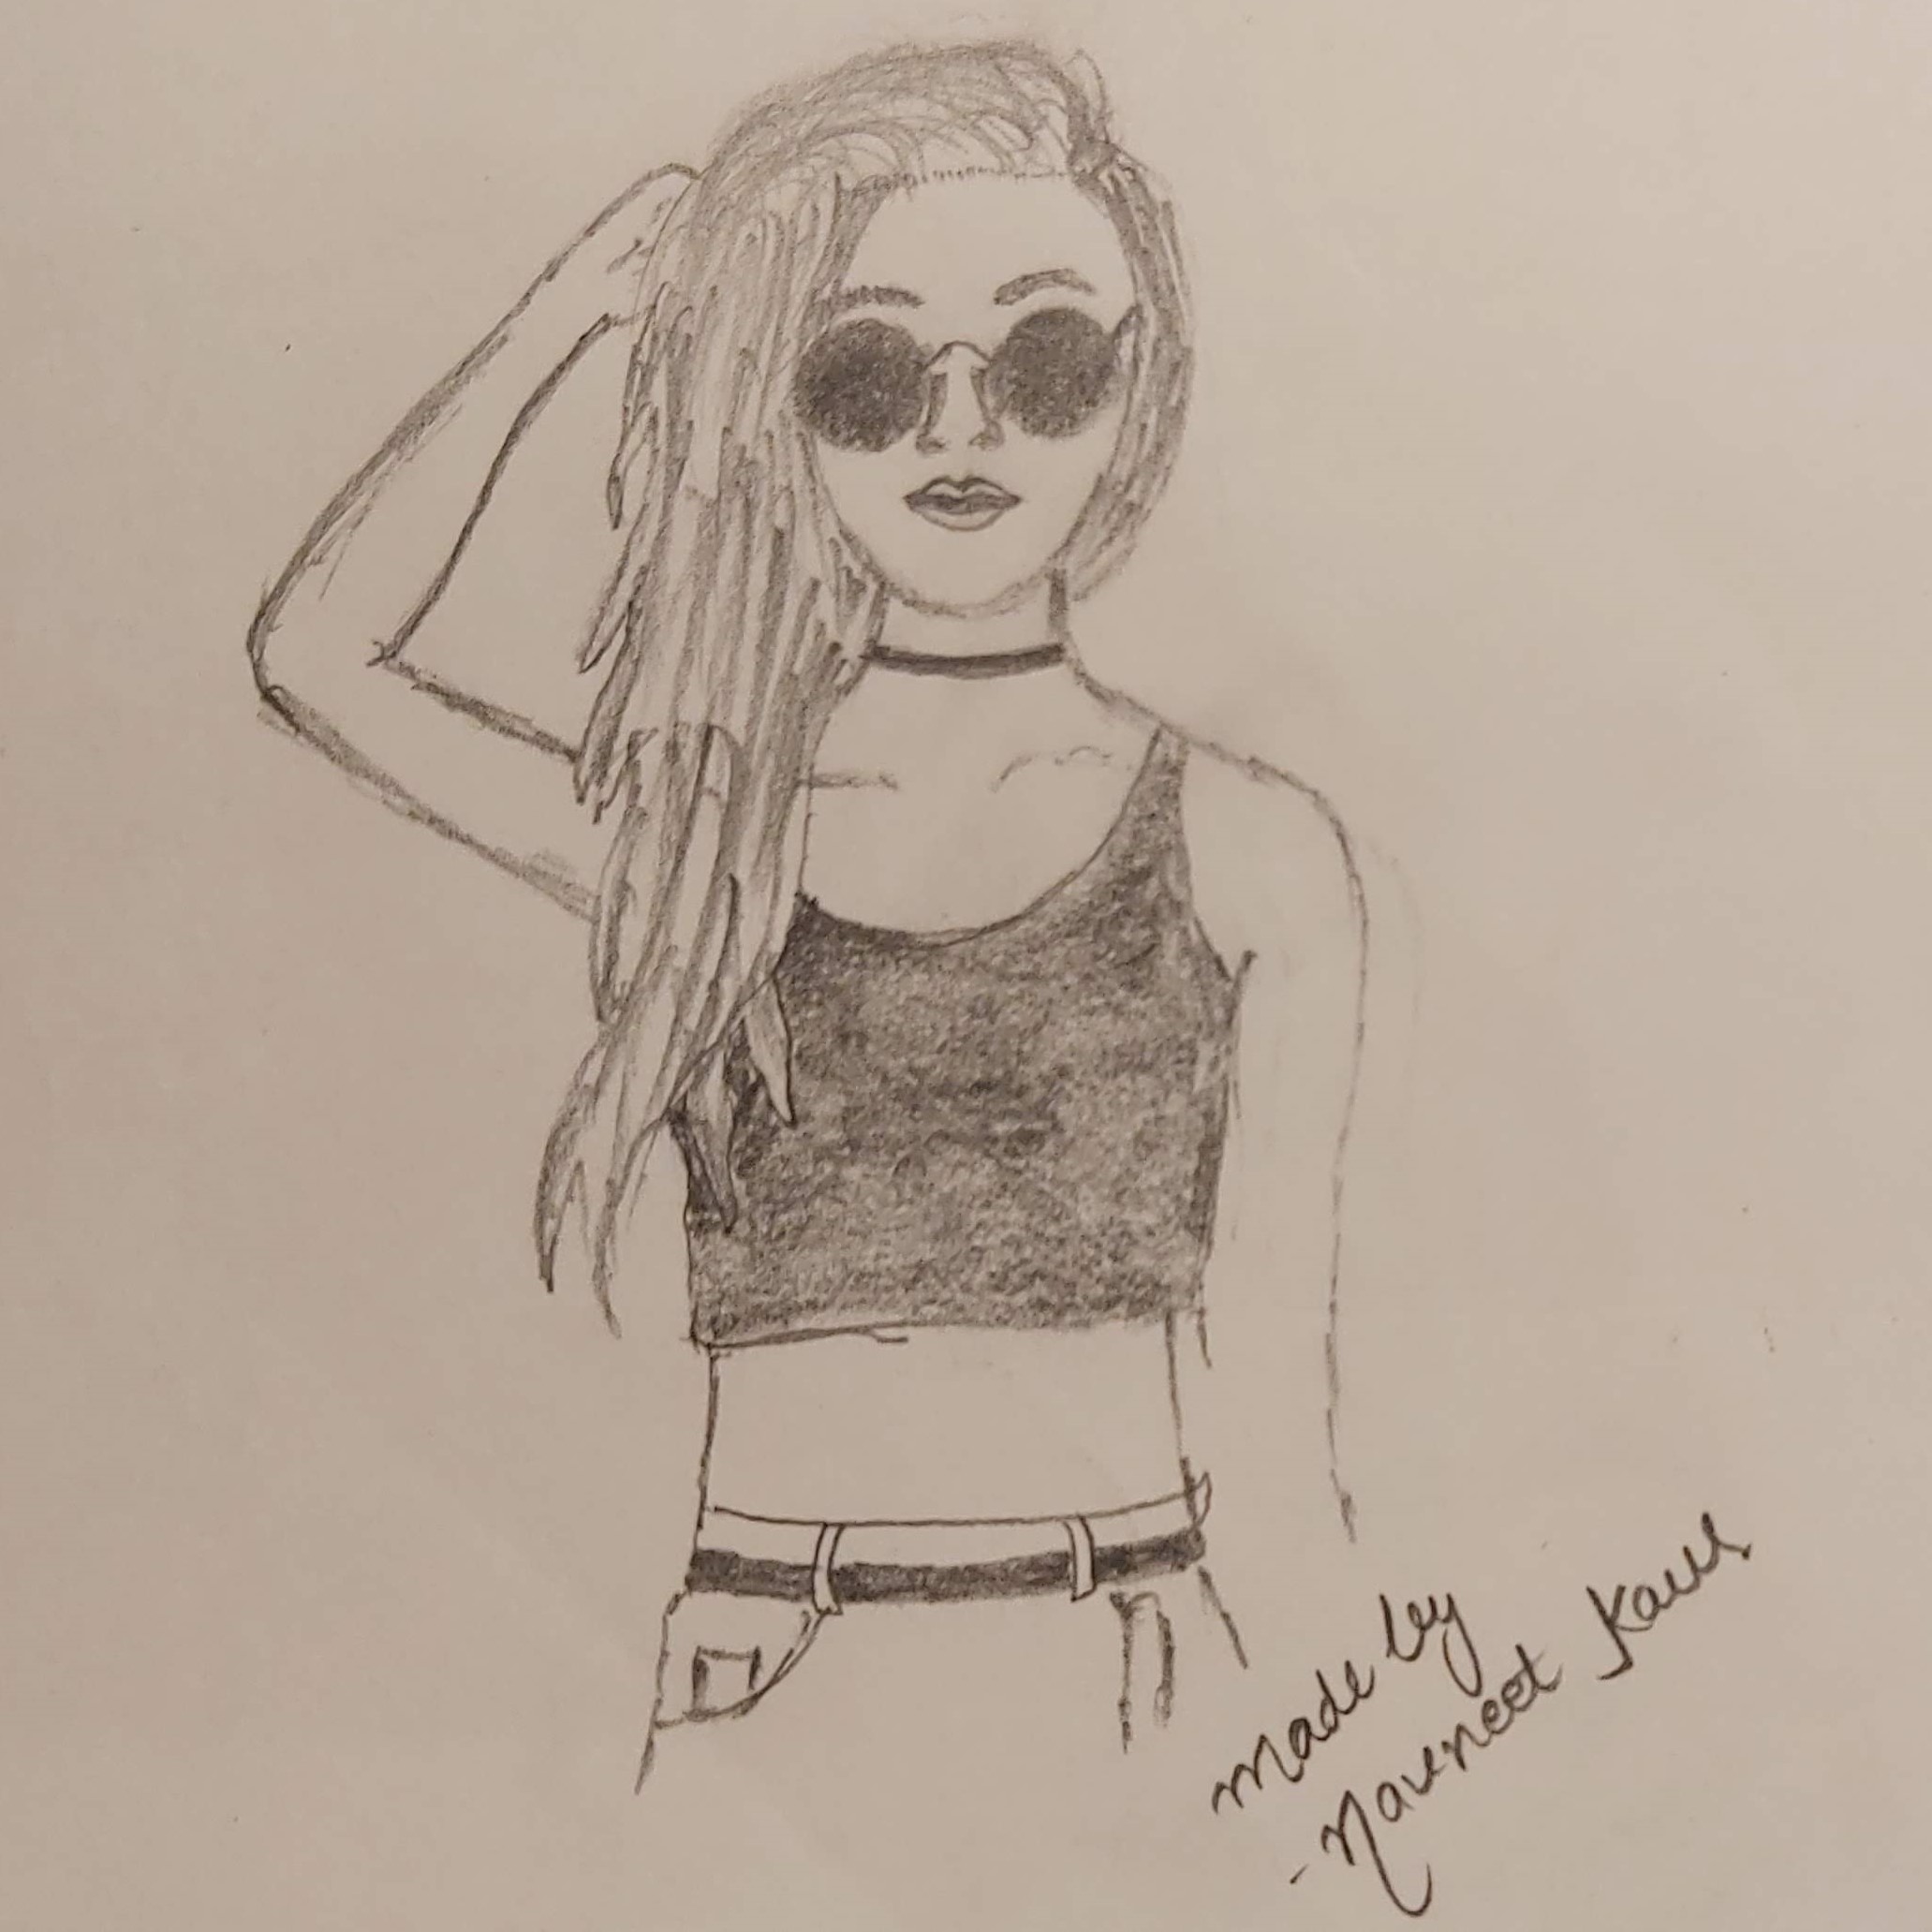 Made by
- Navneet Kaur